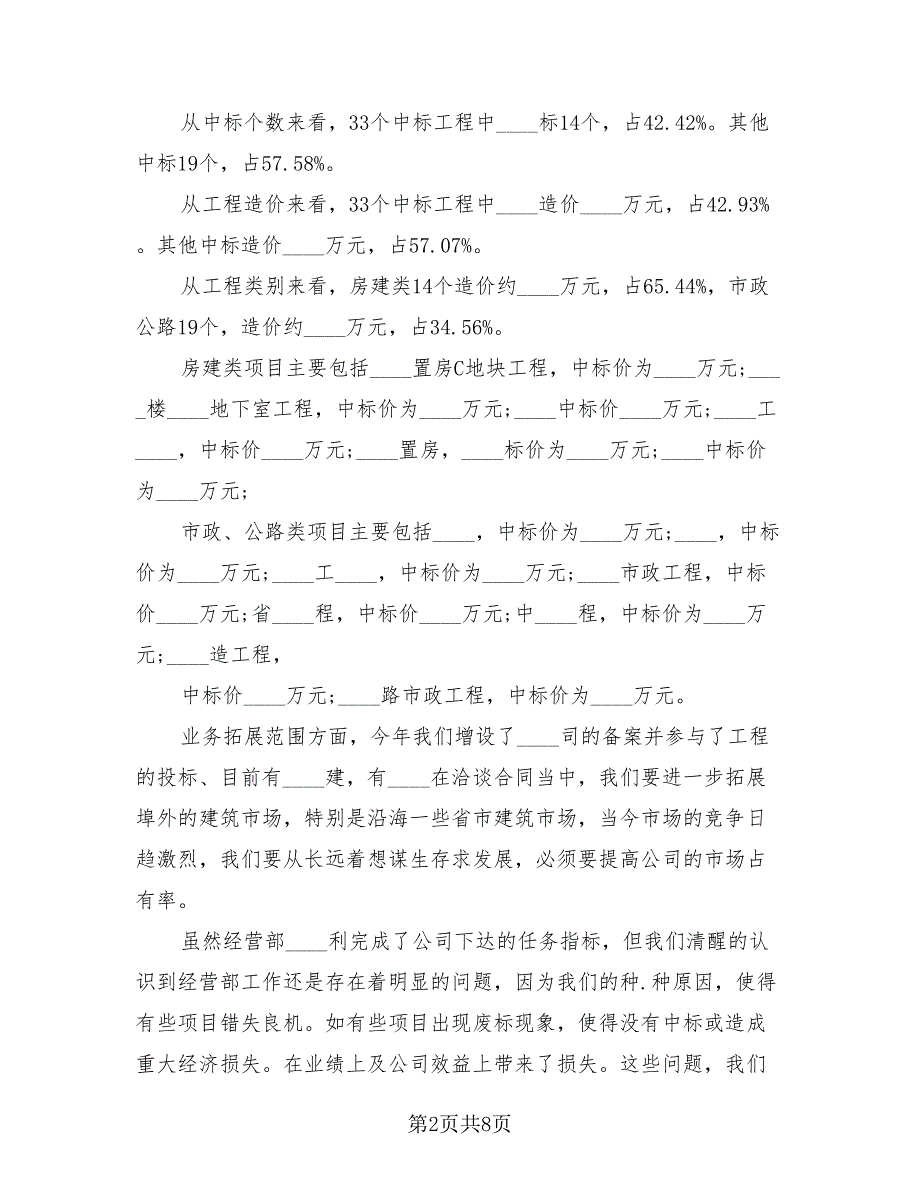 从中标个数来看，33个中标工程中____标14个，占42.42%。其他
中标19个，占57.58%。
从工程造价来看，33个中标工程中____造价____万元，占42.93%
。其他中标造价____万元，占57.07%。
从工程类别来看，房建类14个造价约____万元，占65.44%，市政
公路19个，造价约____万元，占34.56%。
房建类项目主要包括____置房C地块工程，中标价为____万元;___
_楼____地下室工程，中标价为____万元;____中标价____万元;____工
____，中标价____万元;____置房，____标价为____万元;____中标价
为____万元;
市政、公路类项目主要包括____，中标价为____万元;____，中标
价为____万元;____工____，中标价为____万元;____市政工程，中标
价____万元;省____程，中标价____万元;中____程，中标价为____万
元;____造工程，
中标价____万元;____路市政工程，中标价为____万元。
业务拓展范围方面，今年我们增设了____司的备案并参与了工程
的投标、目前有____建，有____在洽谈合同当中，我们要进一步拓展
埠外的建筑市场，特别是沿海一些省市建筑市场，当今市场的竞争日
趋激烈，我们要从长远着想谋生存求发展，必须要提高公司的市场占
有率。
虽然经营部____利完成了公司下达的任务指标，但我们清醒的认
识到经营部工作还是存在着明显的问题，因为我们的种.种原因，使得
有些项目错失良机。如有些项目出现废标现象，使得没有中标或造成
重大经济损失。在业绩上及公司效益上带来了损失。这些问题，我们
第2页共8页